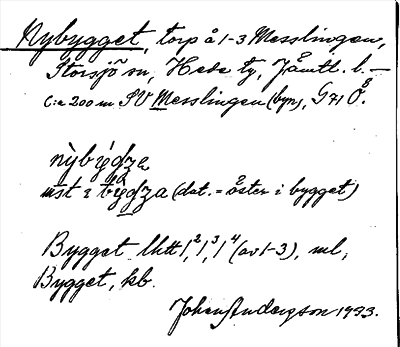 Nybygget, torp å 1-3 Messlingen,
Storsjö sn, Hede tg, Jämtl. l. —
C:a 200 m SV Messlingen (byn), G 71 Ö.
nỳbýǵdza
(dat. = öster i bygget)
Bygget lktt 1², 1³, 1⁴ (av 1-3), ml,
Bygget, kb.
Johan Anderzson 1933.